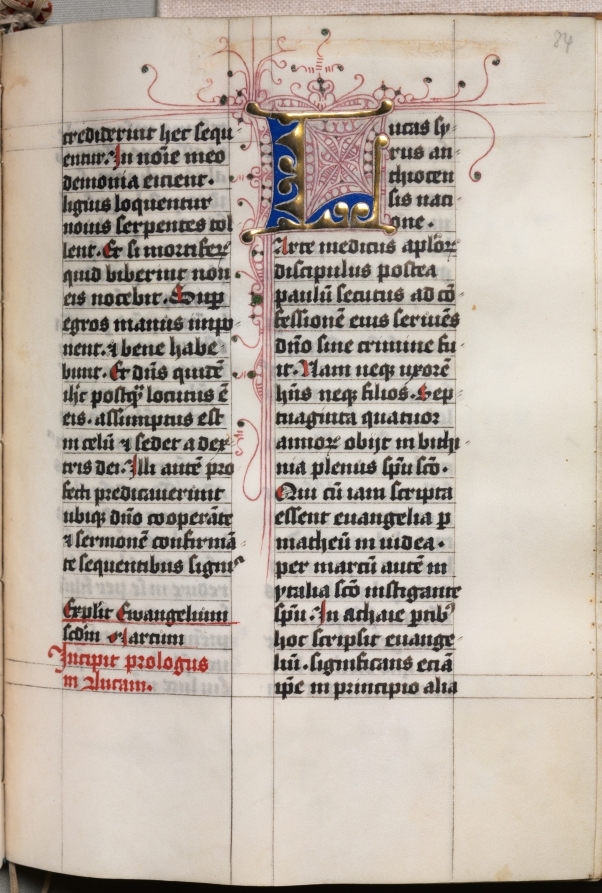 84
crediderint hec sequ
entur. In noīe meo
demonia eicient.
ligius loquentur
nouis serpentes tol
lent. Et si mortiferū
quid biberint non
eis nocebit. Sup
egros manus impo
nent. ⁊ bene habe
bunt. Et dn̄s quidē
ih̄c postq̄ locutus ē
eis. assumptus est
in celū ⁊ sedet a dex
tris dei. Illi autē pro
fecti predicauerunt
ubiq̨ dn̄o cooperāte
⁊ sermonē confirmā
te sequentibus signis
Explicit Ewangelium
scd̄m Marcum
Incipit prologus
in Lucam.
Lucas sy
rus an
thiocen
sis nati
one.
Arte medicus aplōꝝ
discipulus postea
paulū secutus ad cō
fessionē eius seruiēs
dn̄o sine crimine fu
it. Nam neq̨ uxorē
hn̄s neq̨ filios. Sep
tuaginta quatuor
annoꝝ obijt in bithi
nia plenus sp̄u sc̄o.
Qui cū iam scripta
essent euangelia p
matheū in iudea.
per marcū autē in
ytalia sc̄o instigante
sp̄u. In achaie ptibꝰ
hoc scripsit euange
liū. significans eciā
ip̄e in principio alia